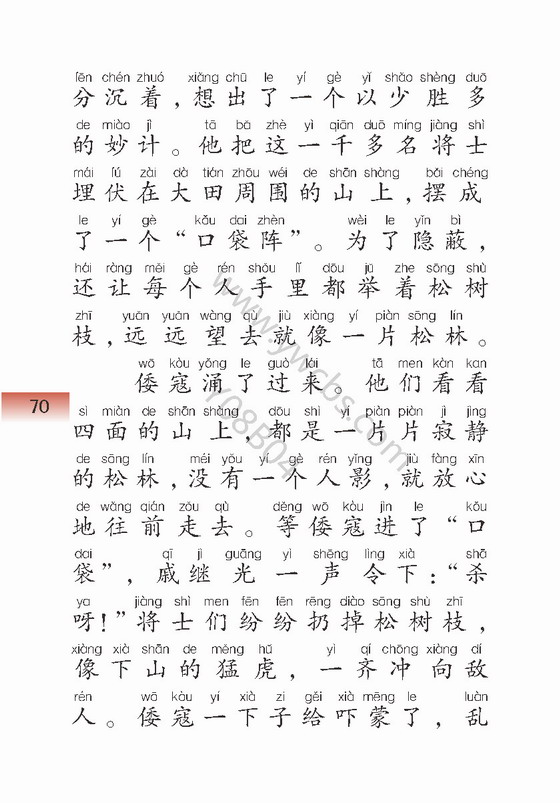 fēn chén zhuó xiǎng chū le yí gè yǐ shǎo shèng duō
分沉着，想出了一个以少胜多
de miào jì tā bǎ zhè yì qiān duō míng jiàng shì
的妙计。他把这一千多名将士
mái fú zài dà tián zhōu wéi de shān shàng bǎi chéng
埋伏在大田周围的山上，摆成
le yí gè kǒu dai zhèn wèi le yǐn bì
了一个“口袋阵”。为了隐蔽，
hái ràng měi gè rén shǒu lǐ dōu jǔ zhe sōng shù
还让每个人手里都举着松树
zhī yuǎn yuǎn wàng qù jiù xiàng yí piàn sōng lín
枝，远远望去就像一片松林。
wō kòu yǒng le guò lái tā men kàn kan
倭寇涌了过来。他们看看
70
sì miàn de shān shàng dōu shì yí piàn piàn jì jìng
四面的山上，都是一片片寂静
de sōng lín méi yǒu yí gè rén yǐng jiù fàng xīn
的松林，没有一个人影，就放心
de wǎng qián zǒu qù děng wō kòu jìn le kǒu
地往前走去。等倭寇进了“口
dai qī jì guāng yì shēng lìng xià shā
袋”，戚继光一声令下：“杀
ya jiàng shì men fēn fēn rēng diào sōng shù zhī
呀！”将士们纷纷扔掉松树枝，
xiàng xià shān de měng hǔ yì qí chōng xiàng dí
像下山的猛虎，一齐冲向敌
rén wō kòu yí xià zi gěi xià mēng le luàn
人。倭寇一下子给吓蒙了，乱
www.ywcbs.com
Y08B04